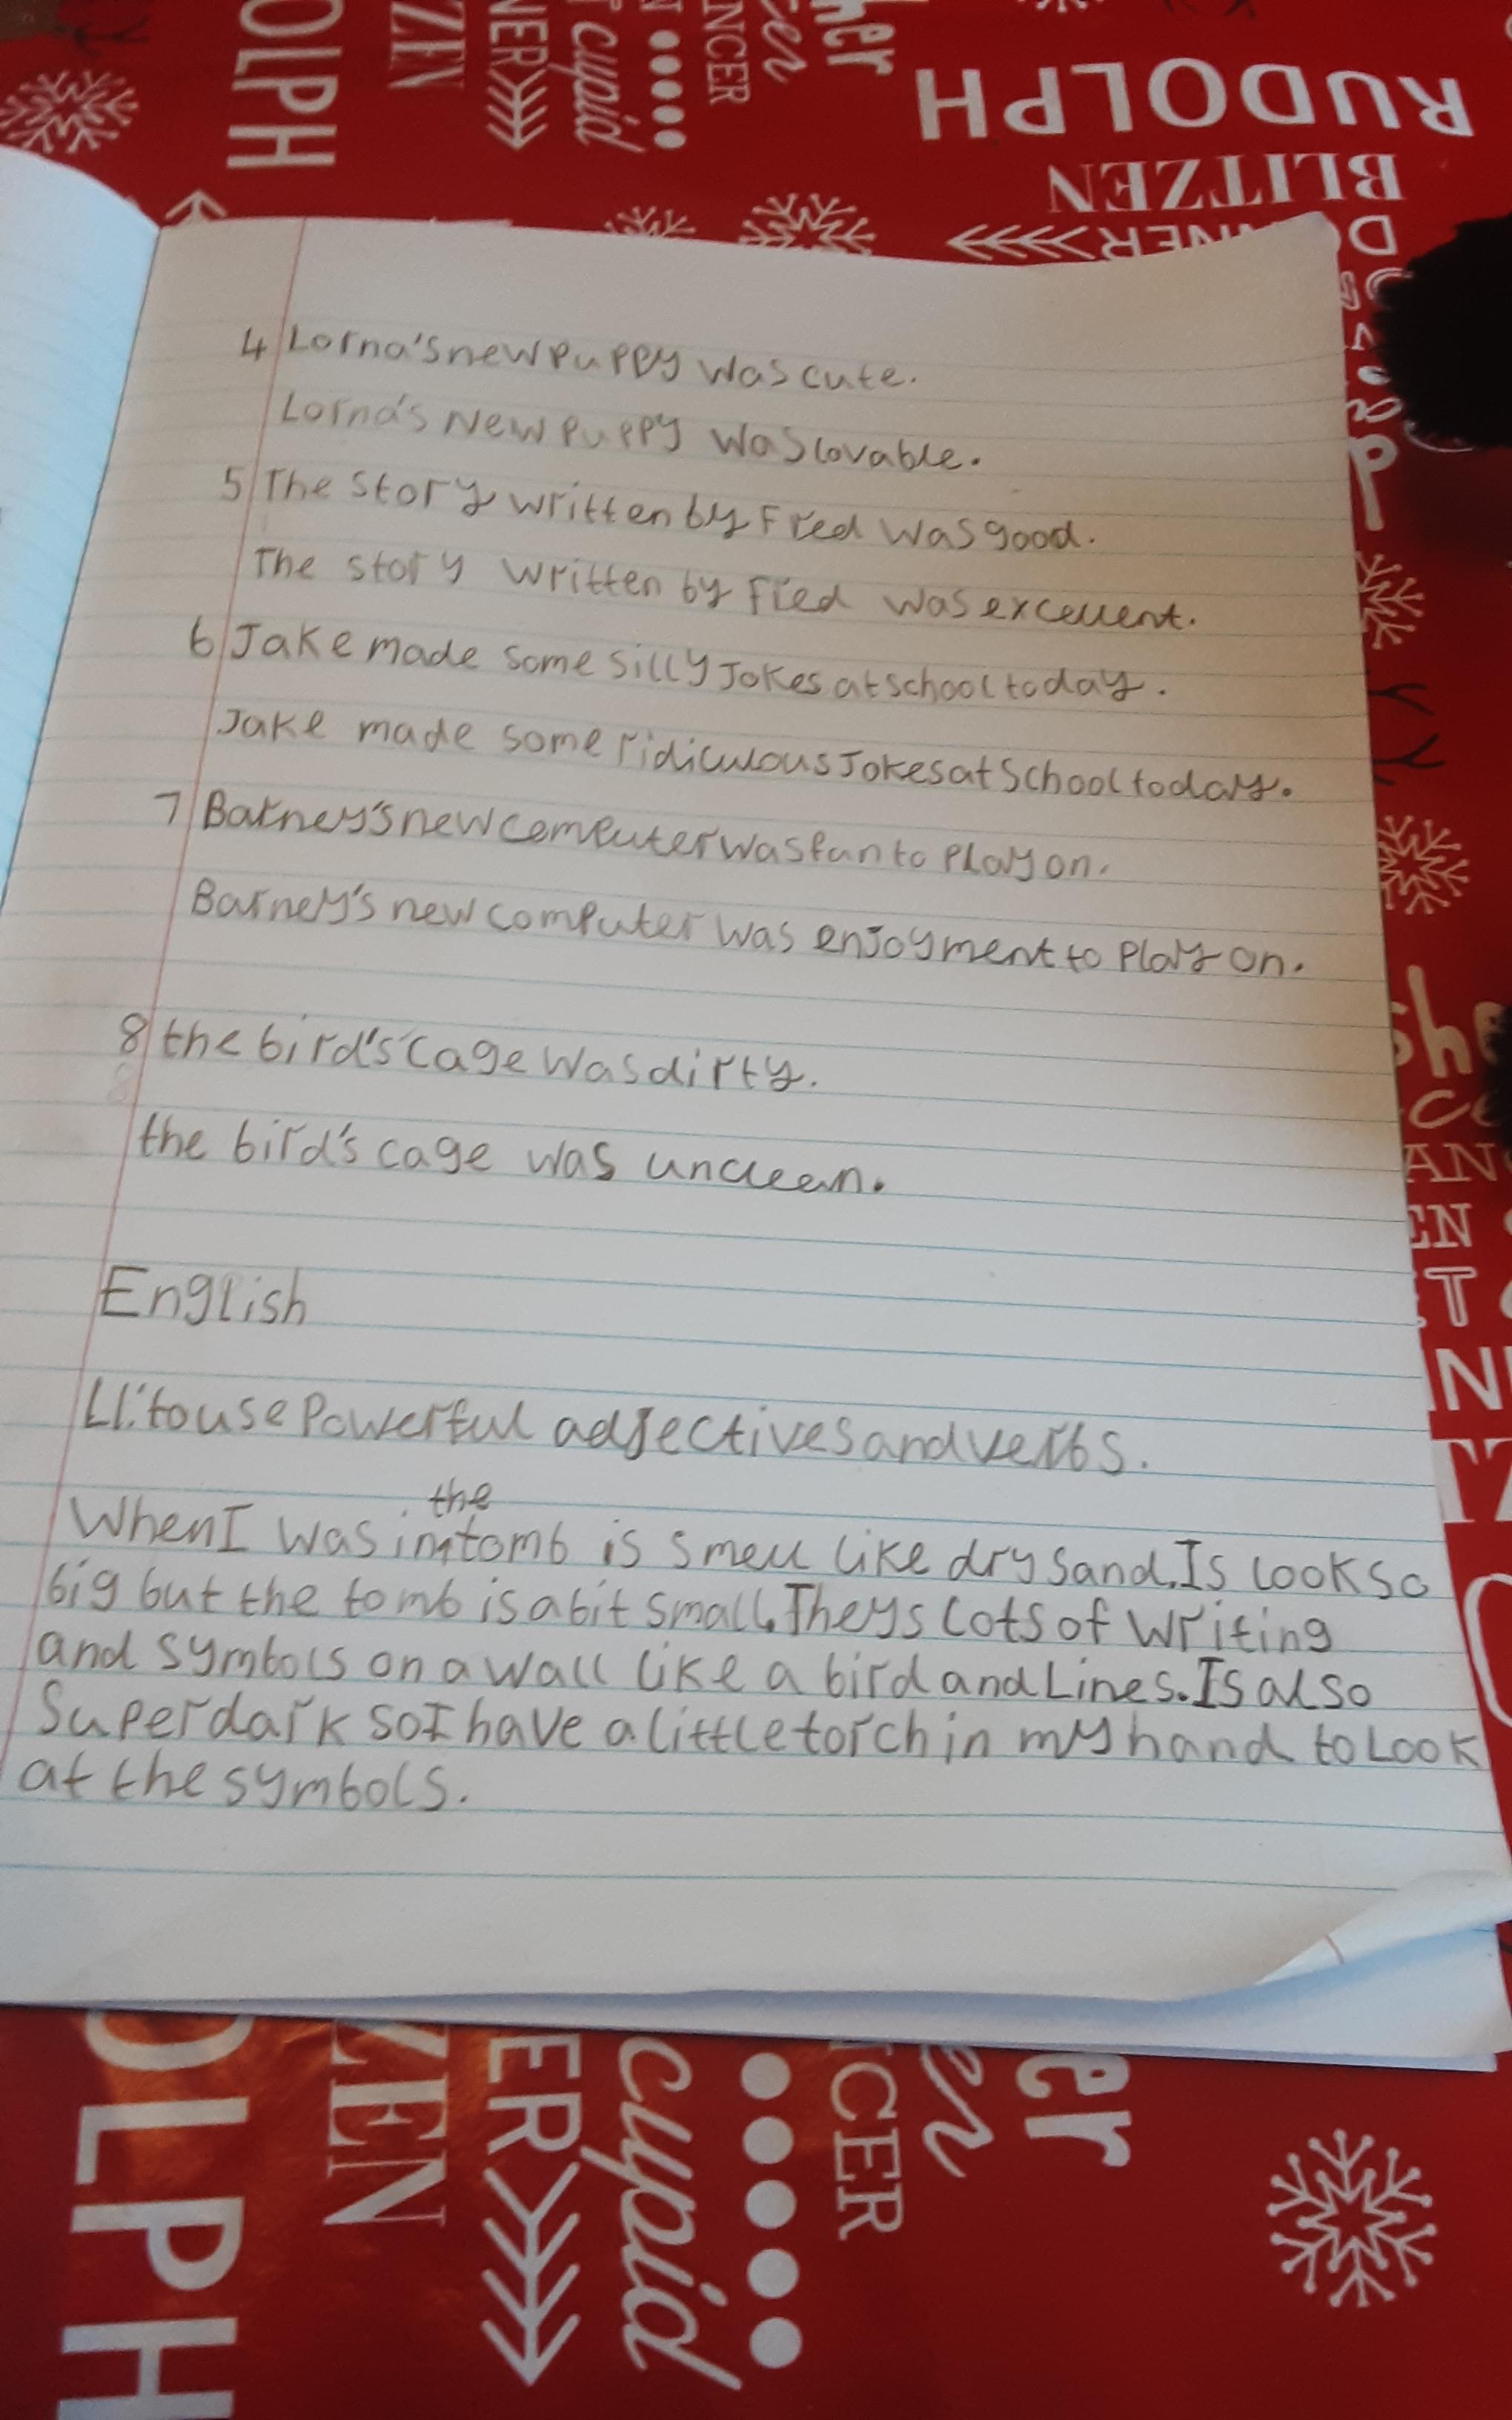 OLPH
ZEN
NER
cupid
NCER
er
her
RUDOLPH
BLITZEN
4 Lorna's new puppy was cute.
Lorna's New puppy was lovable.
5 The story written by Fred was good.
The story written by Fred was excellent.
6 Jake made some silly Jokes at school today.
Jake made some ridiculous Jokes at School today.
7 Barney's new computer was fun to play on.
Barney's new computer was enjoyment to play on.
8 the bird's cage was dirty.
the bird's cage was unclean.
English
LI: to use Powerful adjectives and verbs.
When I was in the tomb is smell like dry sand. Is look so
big but the tomb is a bit small. Theys lots of writing
and symbols on a wall like a bird and Lines. Is also
Super dark so I have a little torch in my hand to Look
at the symbols.
OLPH
ZEN
ER
cupid
CER
en
er